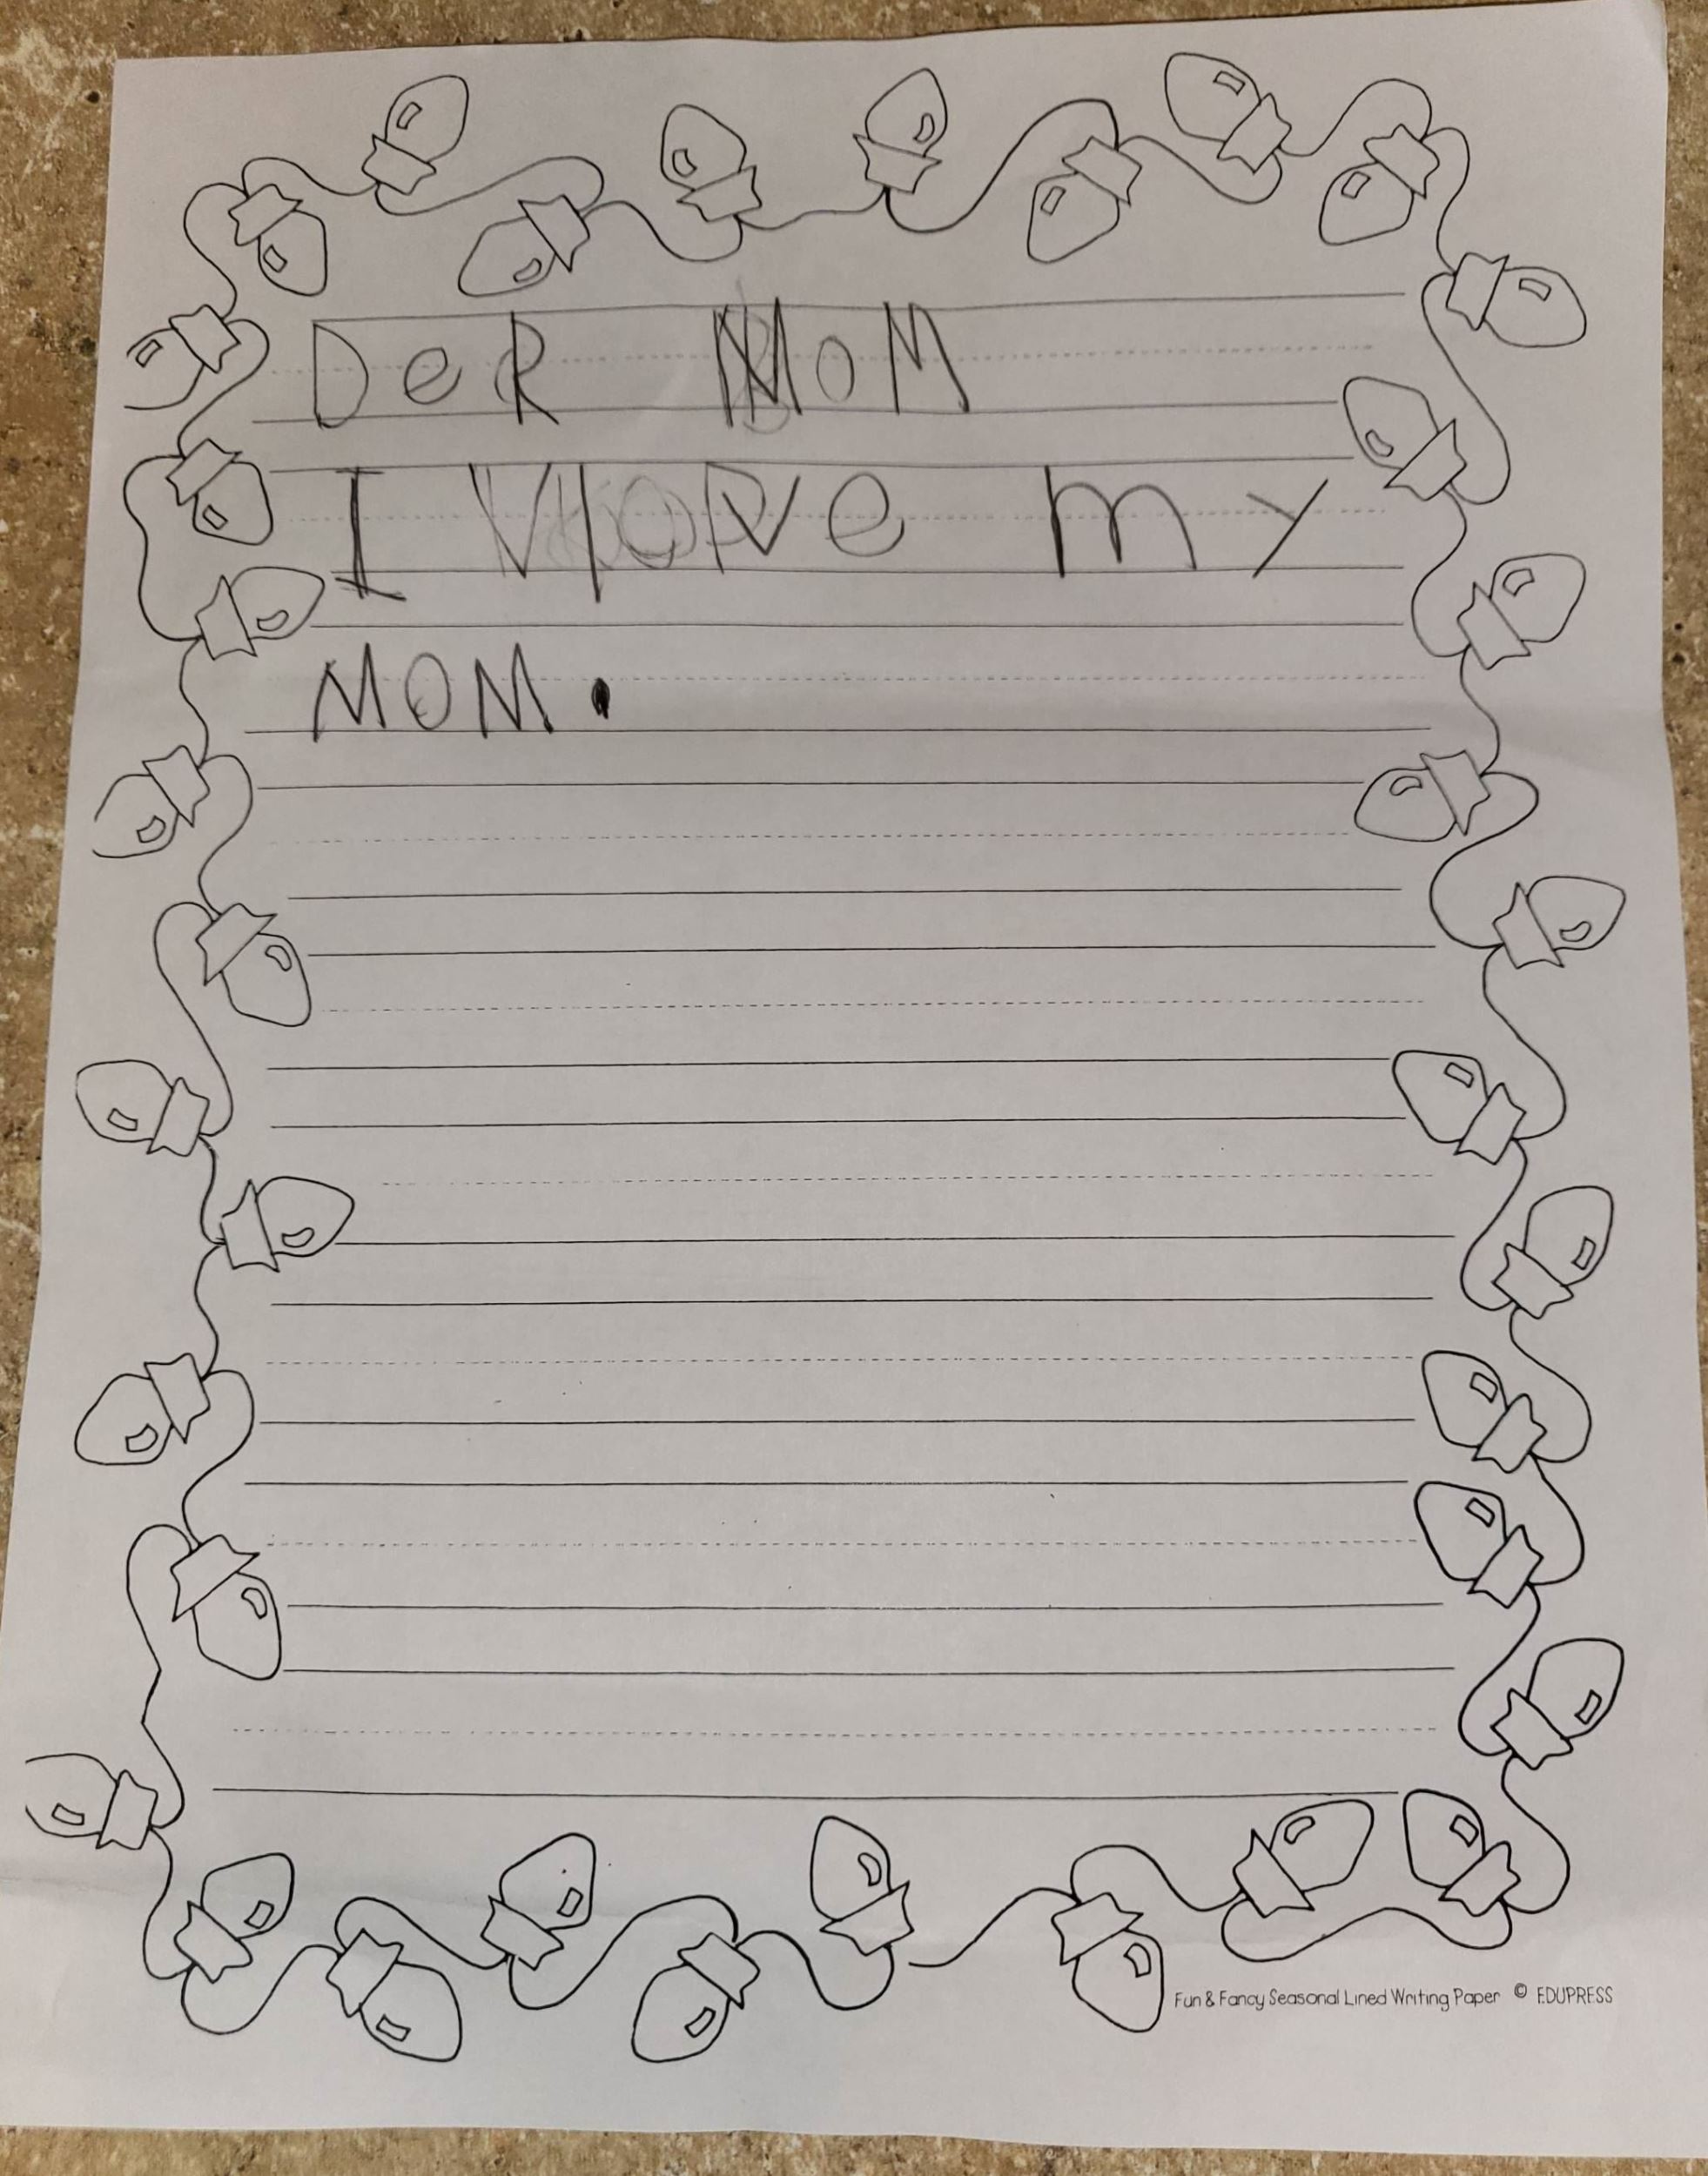 DeR MoM
I Vlove my
MOM.
Fun & Fancy Seasonal Lined Writing Paper © EDUPRESS